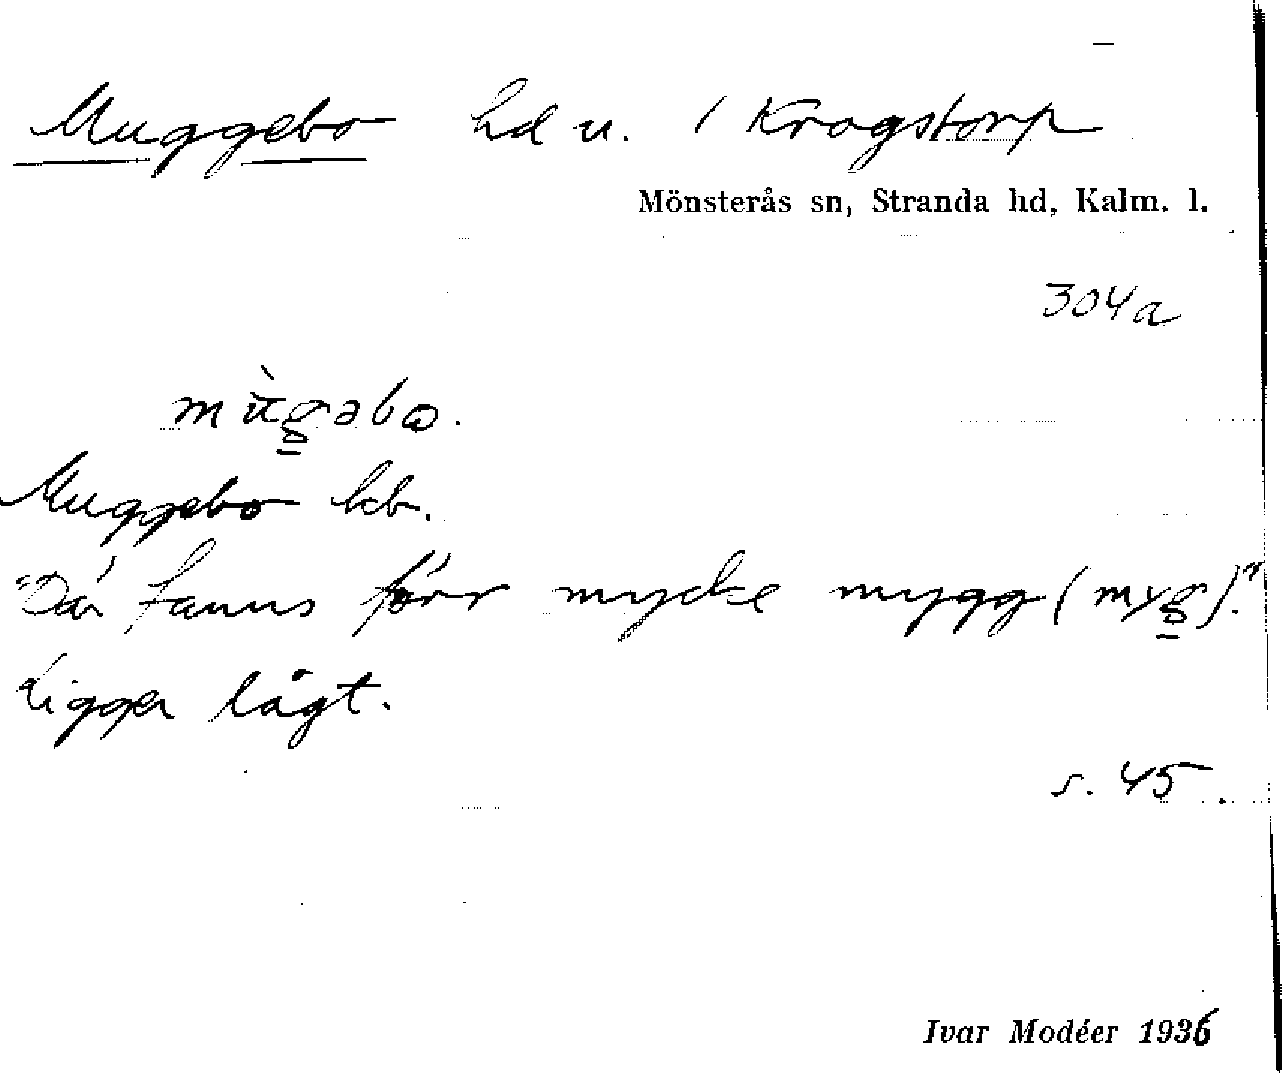 Muggebo hd u. / Krogstorp
Mönsterås sn, Stranda hd, Kalm. l.
304a
mùgəbo.
Muggebo hb.
"Där fanns förr mycke mygg (myg)."
Ligger lågt.
s. 45.
Ivar Modéer 1936